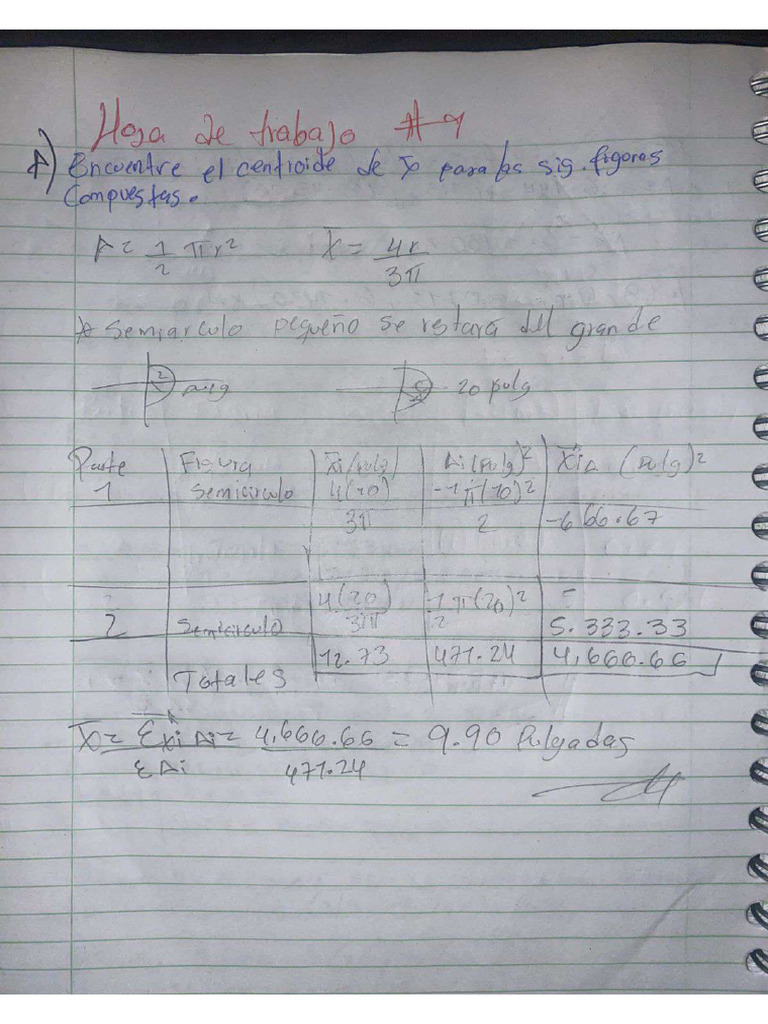 Hoja de trabajo #9
A) Encuentre el centroide de X para las sig. figuras
Compuestas.
A = 1/2 πr² X̄ = 4r/3π
* Semicirculo pequeño se restara del grande
20 pulg
Parte Figura X̄i (pulg) Ai (pulg)² X̄iA (pulg)²
1 Semicirculo 4(10)/3π -1π(10)²/2 -666.67
2 Semicirculo 4(20)/3π 1π(20)²/2 5.333.33
Totales 12.73 471.24 4,666.66
X̄ = ΣX̄i Ai/ΣAi = 4,666.66/471.24 = 9.90 Pulgadas